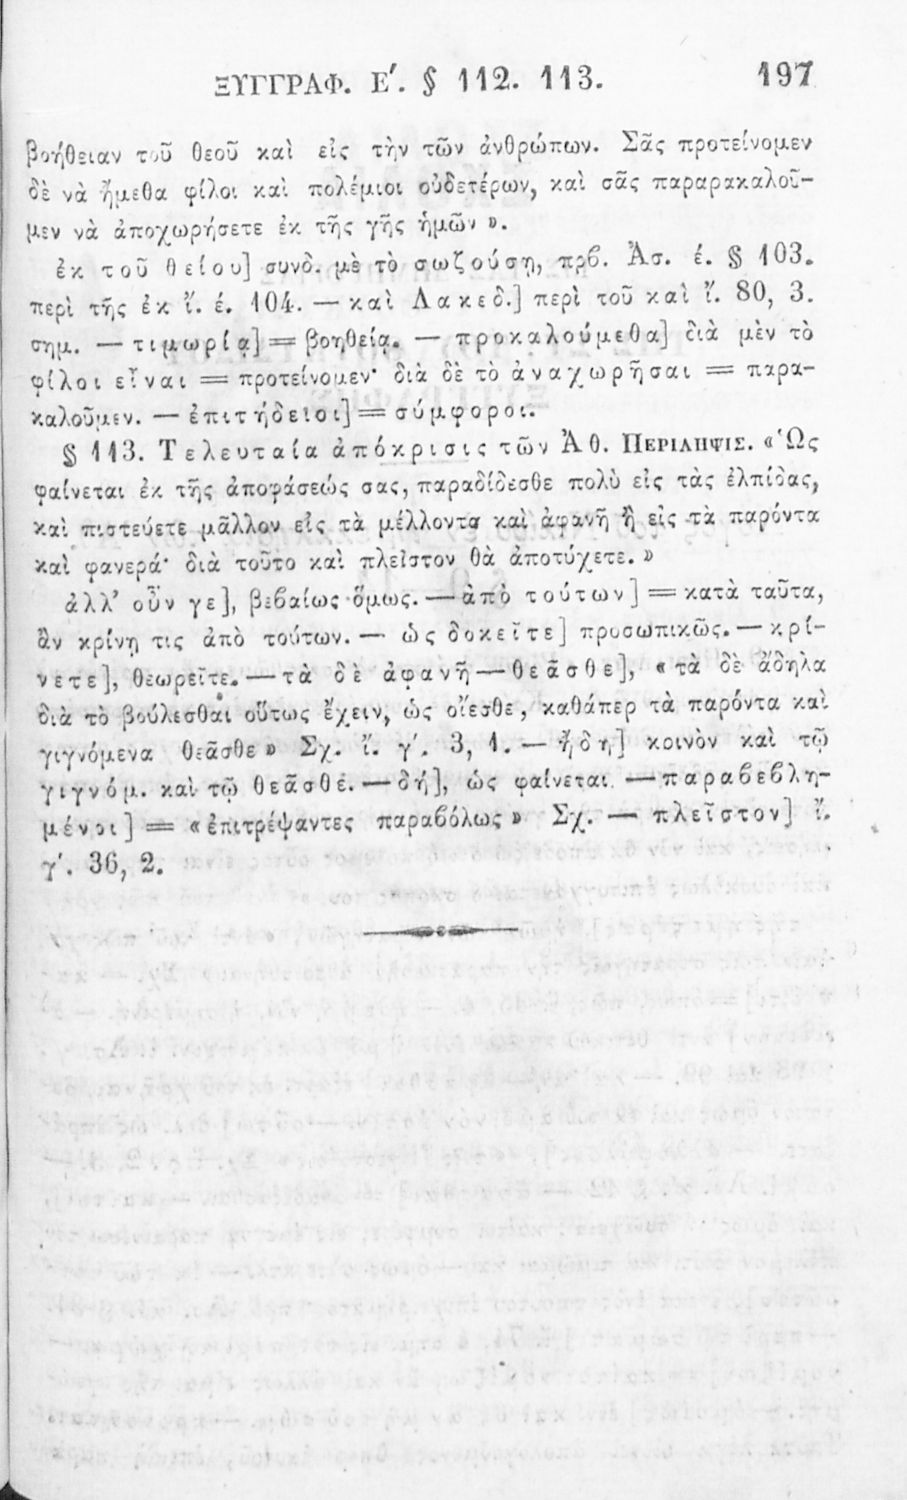 ΞΥΓΓΡΑΦ. Ε΄. § 112. 113. 197
βοήθειαν τοῦ θεοῦ καὶ εἰς τὴν τῶν ἀνθρώπων. Σᾶς προτείνομεν
δὲ νὰ ἤμεθα φίλοι καὶ πολέμιοι οὐδετέρων, καὶ σᾶς παραρακαλοῦ-
μεν νὰ ἀποχωρήσετε ἐκ τῆς γῆς ἡμῶν ».
ἐκ τοῦ θείου] συνδ. μὲ τὸ σωζούσῃ, πρβ. Ἀσ. έ. § 103.
περὶ τῆς ἐκ ἴ. έ. 104. — καὶ Λακεδ.] περὶ τοῦ καὶ ἴ. 80, 3.
σημ. — τιμωρίᾳ] = βοηθείᾳ. — προκαλούμεθα] διὰ μὲν τὸ
φίλοι εἶναι = προτείνομεν· διὰ δὲ τὸ ἀναχωρῆσαι = παρα-
καλοῦμεν. — ἐπιτήδειοι] = σύμφοροι.
§ 113. Τελευταία ἀπόκρισις τῶν Ἀθ. ΠΕΡΙΛΗΨΙΣ. «Ὡς
φαίνεται ἐκ τῆς ἀποφάσεώς σας, παραδίδεσθε πολὺ εἰς τὰς ἐλπίδας,
καὶ πιστεύετε μᾶλλον εἰς τὰ μέλλοντα καὶ ἀφανῆ ἢ εἰς τὰ παρόντα
καὶ φανερά· διὰ τοῦτο καὶ πλεῖστον θὰ ἀποτύχετε. »
ἀλλ’ οὖν γε], βεβαίως ὅμως. — ἀπὸ τούτων] = κατὰ ταῦτα,
ἂν κρίνῃ τις ἀπὸ τούτων. — ὡς δοκεῖτε] προσωπικῶς. — κρί-
νετε], θεωρεῖτε. — τὰ δὲ ἀφανῆ — θεᾶσθε], «τὰ δὲ ἄδηλα
διὰ τὸ βούλεσθαι οὕτως ἔχειν, ὡς οἴεσθε, καθάπερ τὰ παρόντα καὶ
γιγνόμενα θεᾶσθε» Σχ. ἴ. γ΄. 3, 1. — ἤδη] κοινὸν καὶ τῷ
γιγνόμ. καὶ τῷ θεᾶσθέ. — δή], ὡς φαίνεται. — παραβεβλη-
μένοι] = «ἐπιτρέψαντες παραβόλως» Σχ. — πλεῖστον] ἴ.
γ΄. 36, 2.